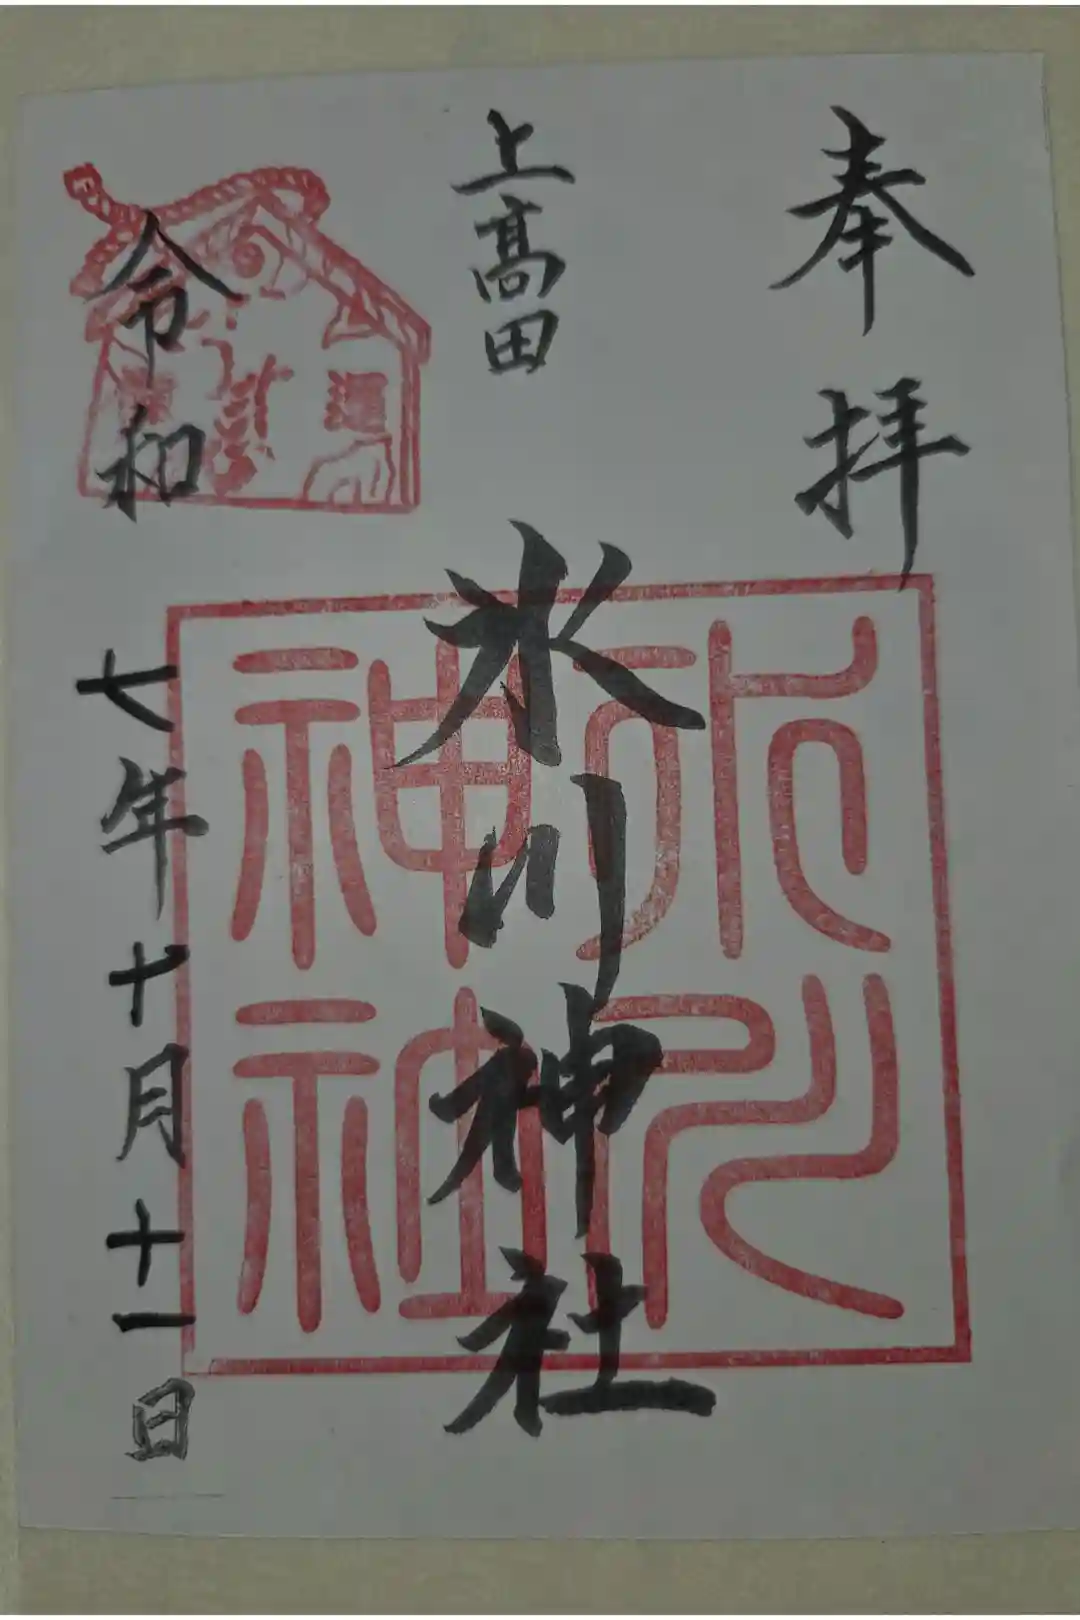 奉拝
上高田
氷川神社
氷川
神社
開運
令和七年十月十一日